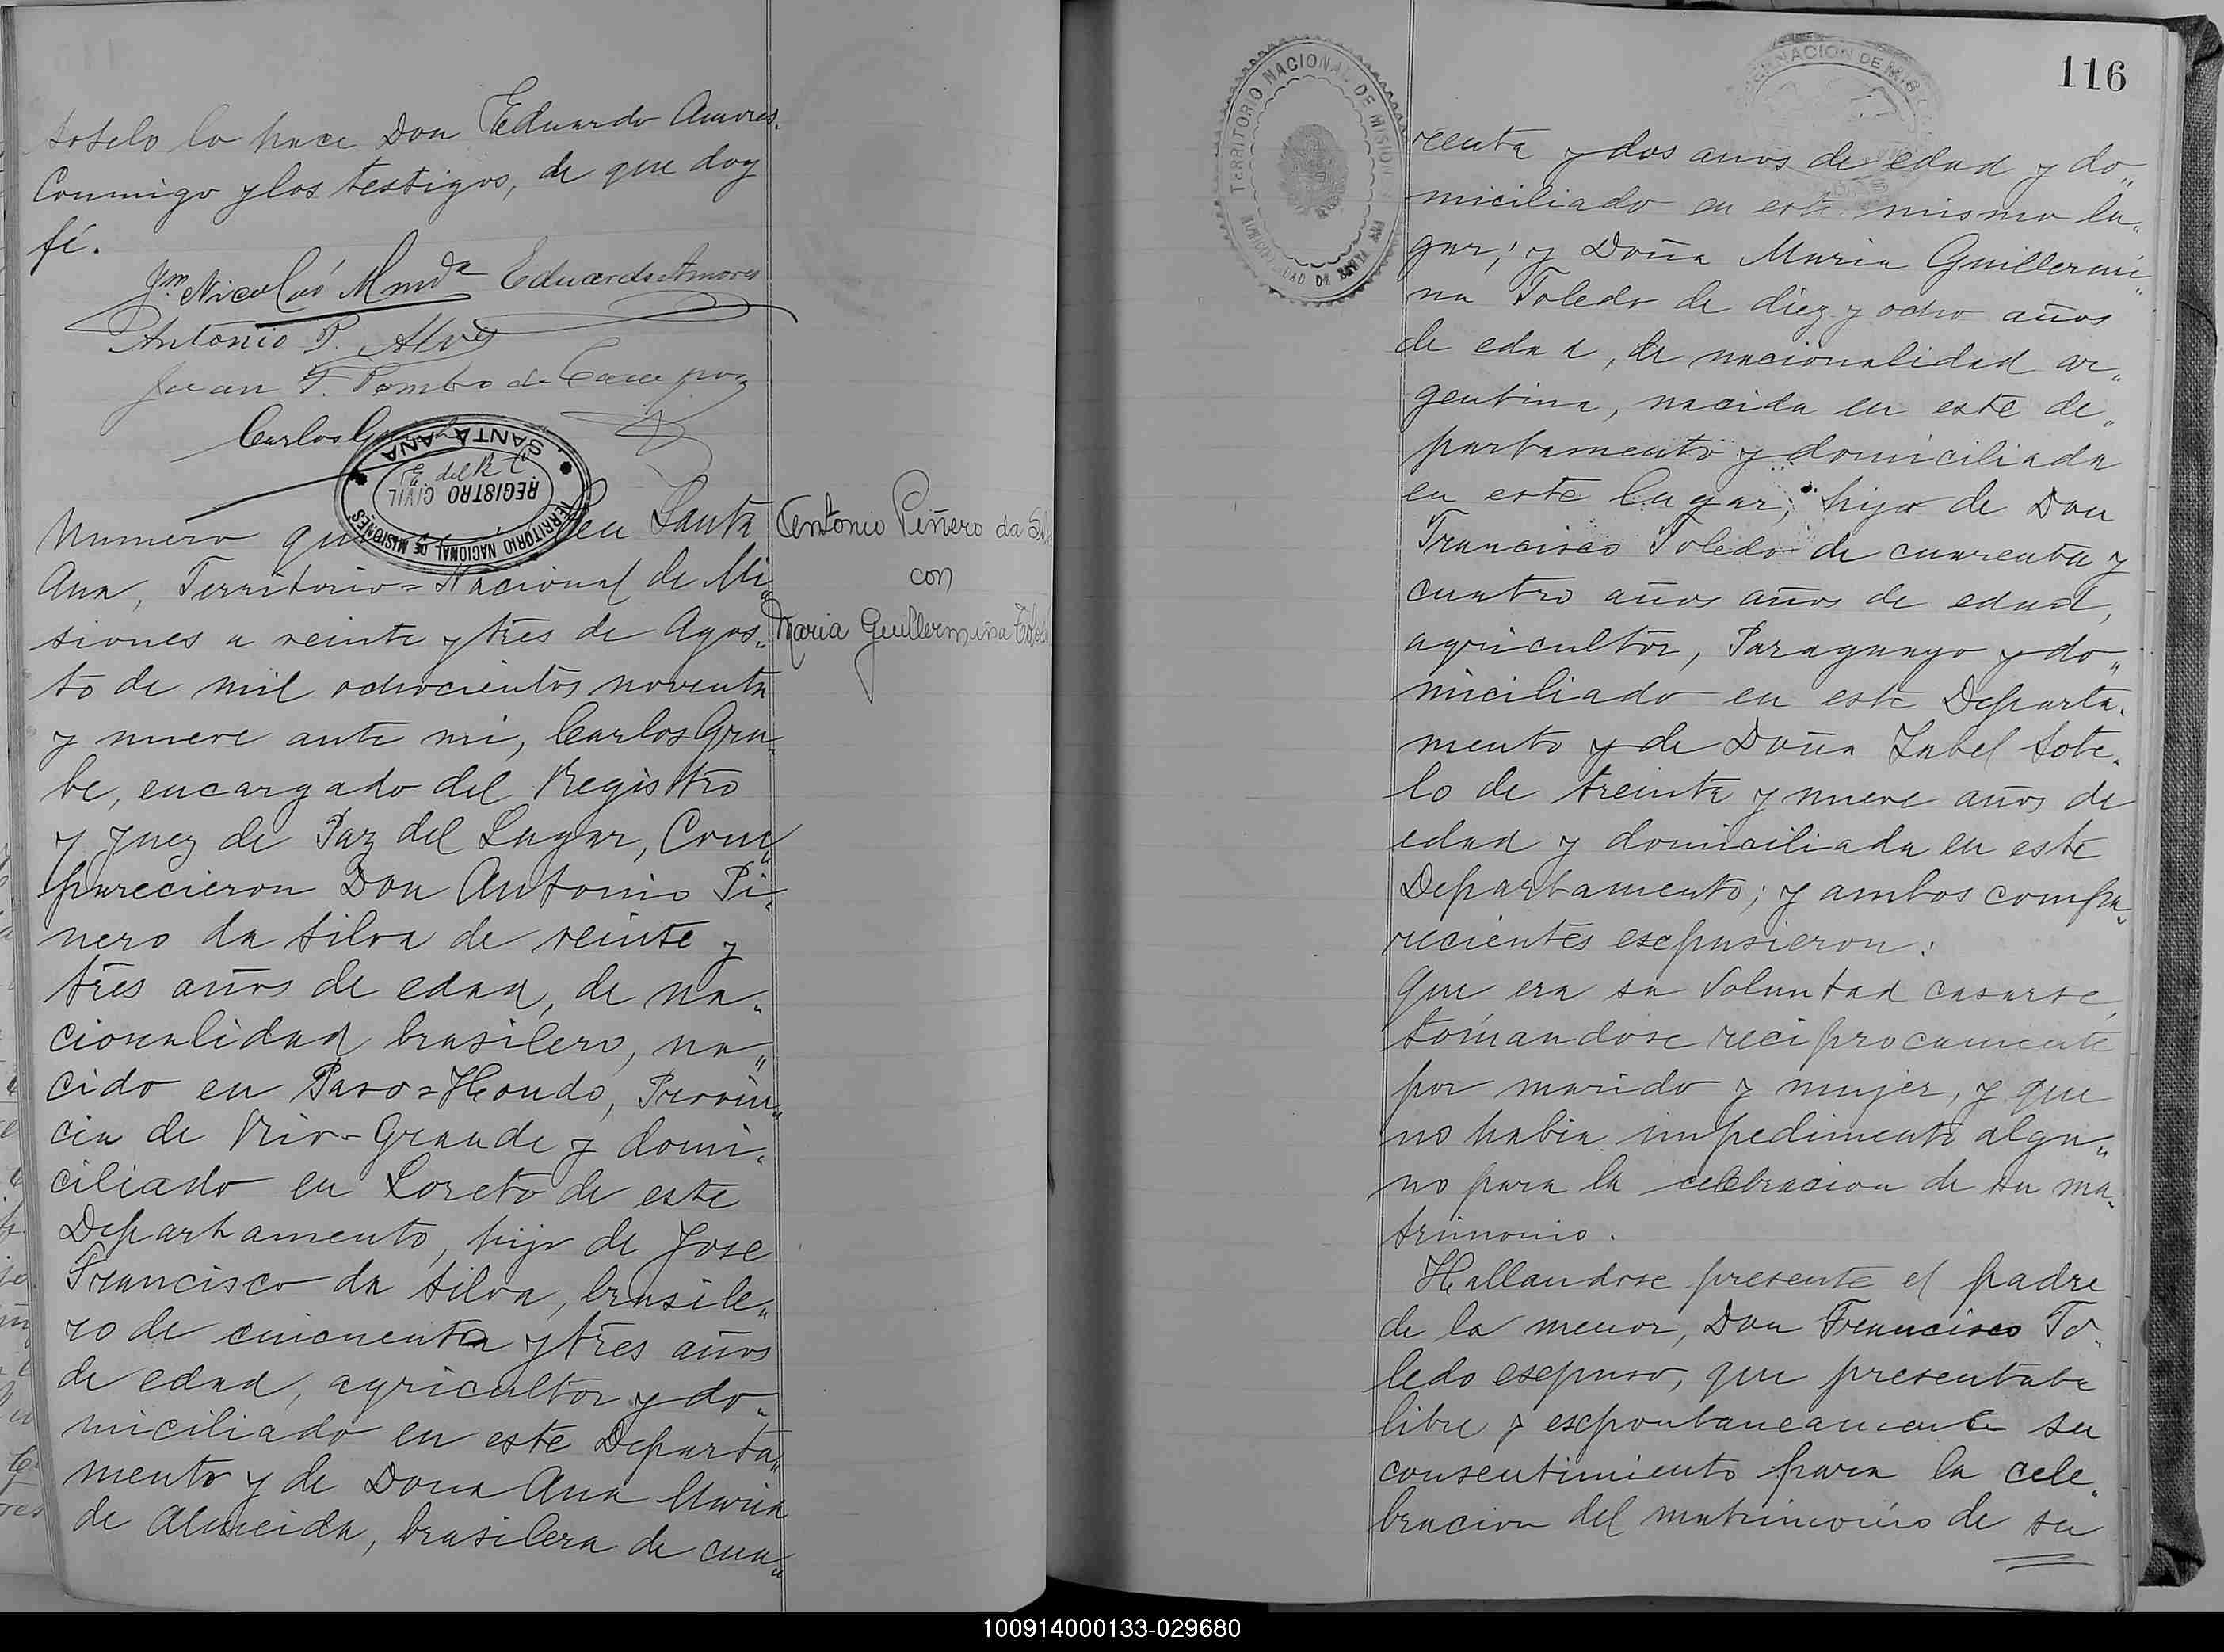 Sotelo lo hace Don Eduardo Amores.
Conmigo y los testigos, de que doy
fé.
Nicolás Eduardo Amores
Antonio P. Alves
Juan F. Pombo de Campos
Carlos
SANTA ANA
E. del R.
REGISTRO CIVIL
TERRITORIO NACIONAL DE MISIONES
Numero en Santa
Ana, Territorio=Nacional de Mi„
siones a veinte y tres de Agos„
to de mil ochocientos noventa
y nueve ante mi, Carlos Gra„
be, encargado del Registro
y Juez de Paz del Lugar, Com„
parecieron Don Antonio Pi„
nero da Silva de veinte y
tres años de edad, de na„
cionalidad brasilero, na„
cido en Paso=Hondo, Provin„
cia de Rio-Grande y domi„
ciliado en Loreto de este
Departamento, hijo de Jose
Francisco da Silva, brasile„
ro de cincuenta y tres años
de edad, agricultor y do„
miciliado en este Departa„
mento y de Dona Ana Maria
de Almeida, brasilera de cua„
Antonio Piñero da
con
Maria Guillermina
116
TERRITORIO NACIONAL DE MISIONES
renta y dos anos de edad y do„
miciliado en este mismo lu„
gar; y Doña Maria Guillermi„
na Toledo de diez y ocho años
de edad, de nacionalidad ar„
gentina, nacida en este de„
partamento y domiciliada
en este lugar; hija de Don
Francisco Toledo de cuarenta y
cuatro años años de edad,
agricultor, Paraguayo y do„
miciliado en este Departa„
mento y de Doña Isabel Sote„
lo de treinta y nueve años de
edad y domiciliada en este
Departamento; y ambos compa„
recientes escpusieron:
Que era su Voluntad casarse,
tomandose reciprocamente
por marido y mujer, y que
no habia impedimento algu„
no para la celebracion de su ma„
trimonio.
Hallandose presente el padre
de la menor, Don Francisco To„
ledo escpuso, que presentaba
libre y escpontaneamente su
consentimiento para la cele„
bracion del matrimonio de su
100914000133-029680